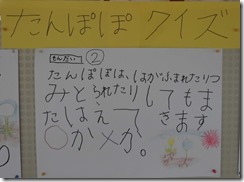 たんぽぽ クイズ
もんだい ②
たんぽぽは、はがふまれたりつ
みとられたりしてもま
たはえてきます
○か×か。